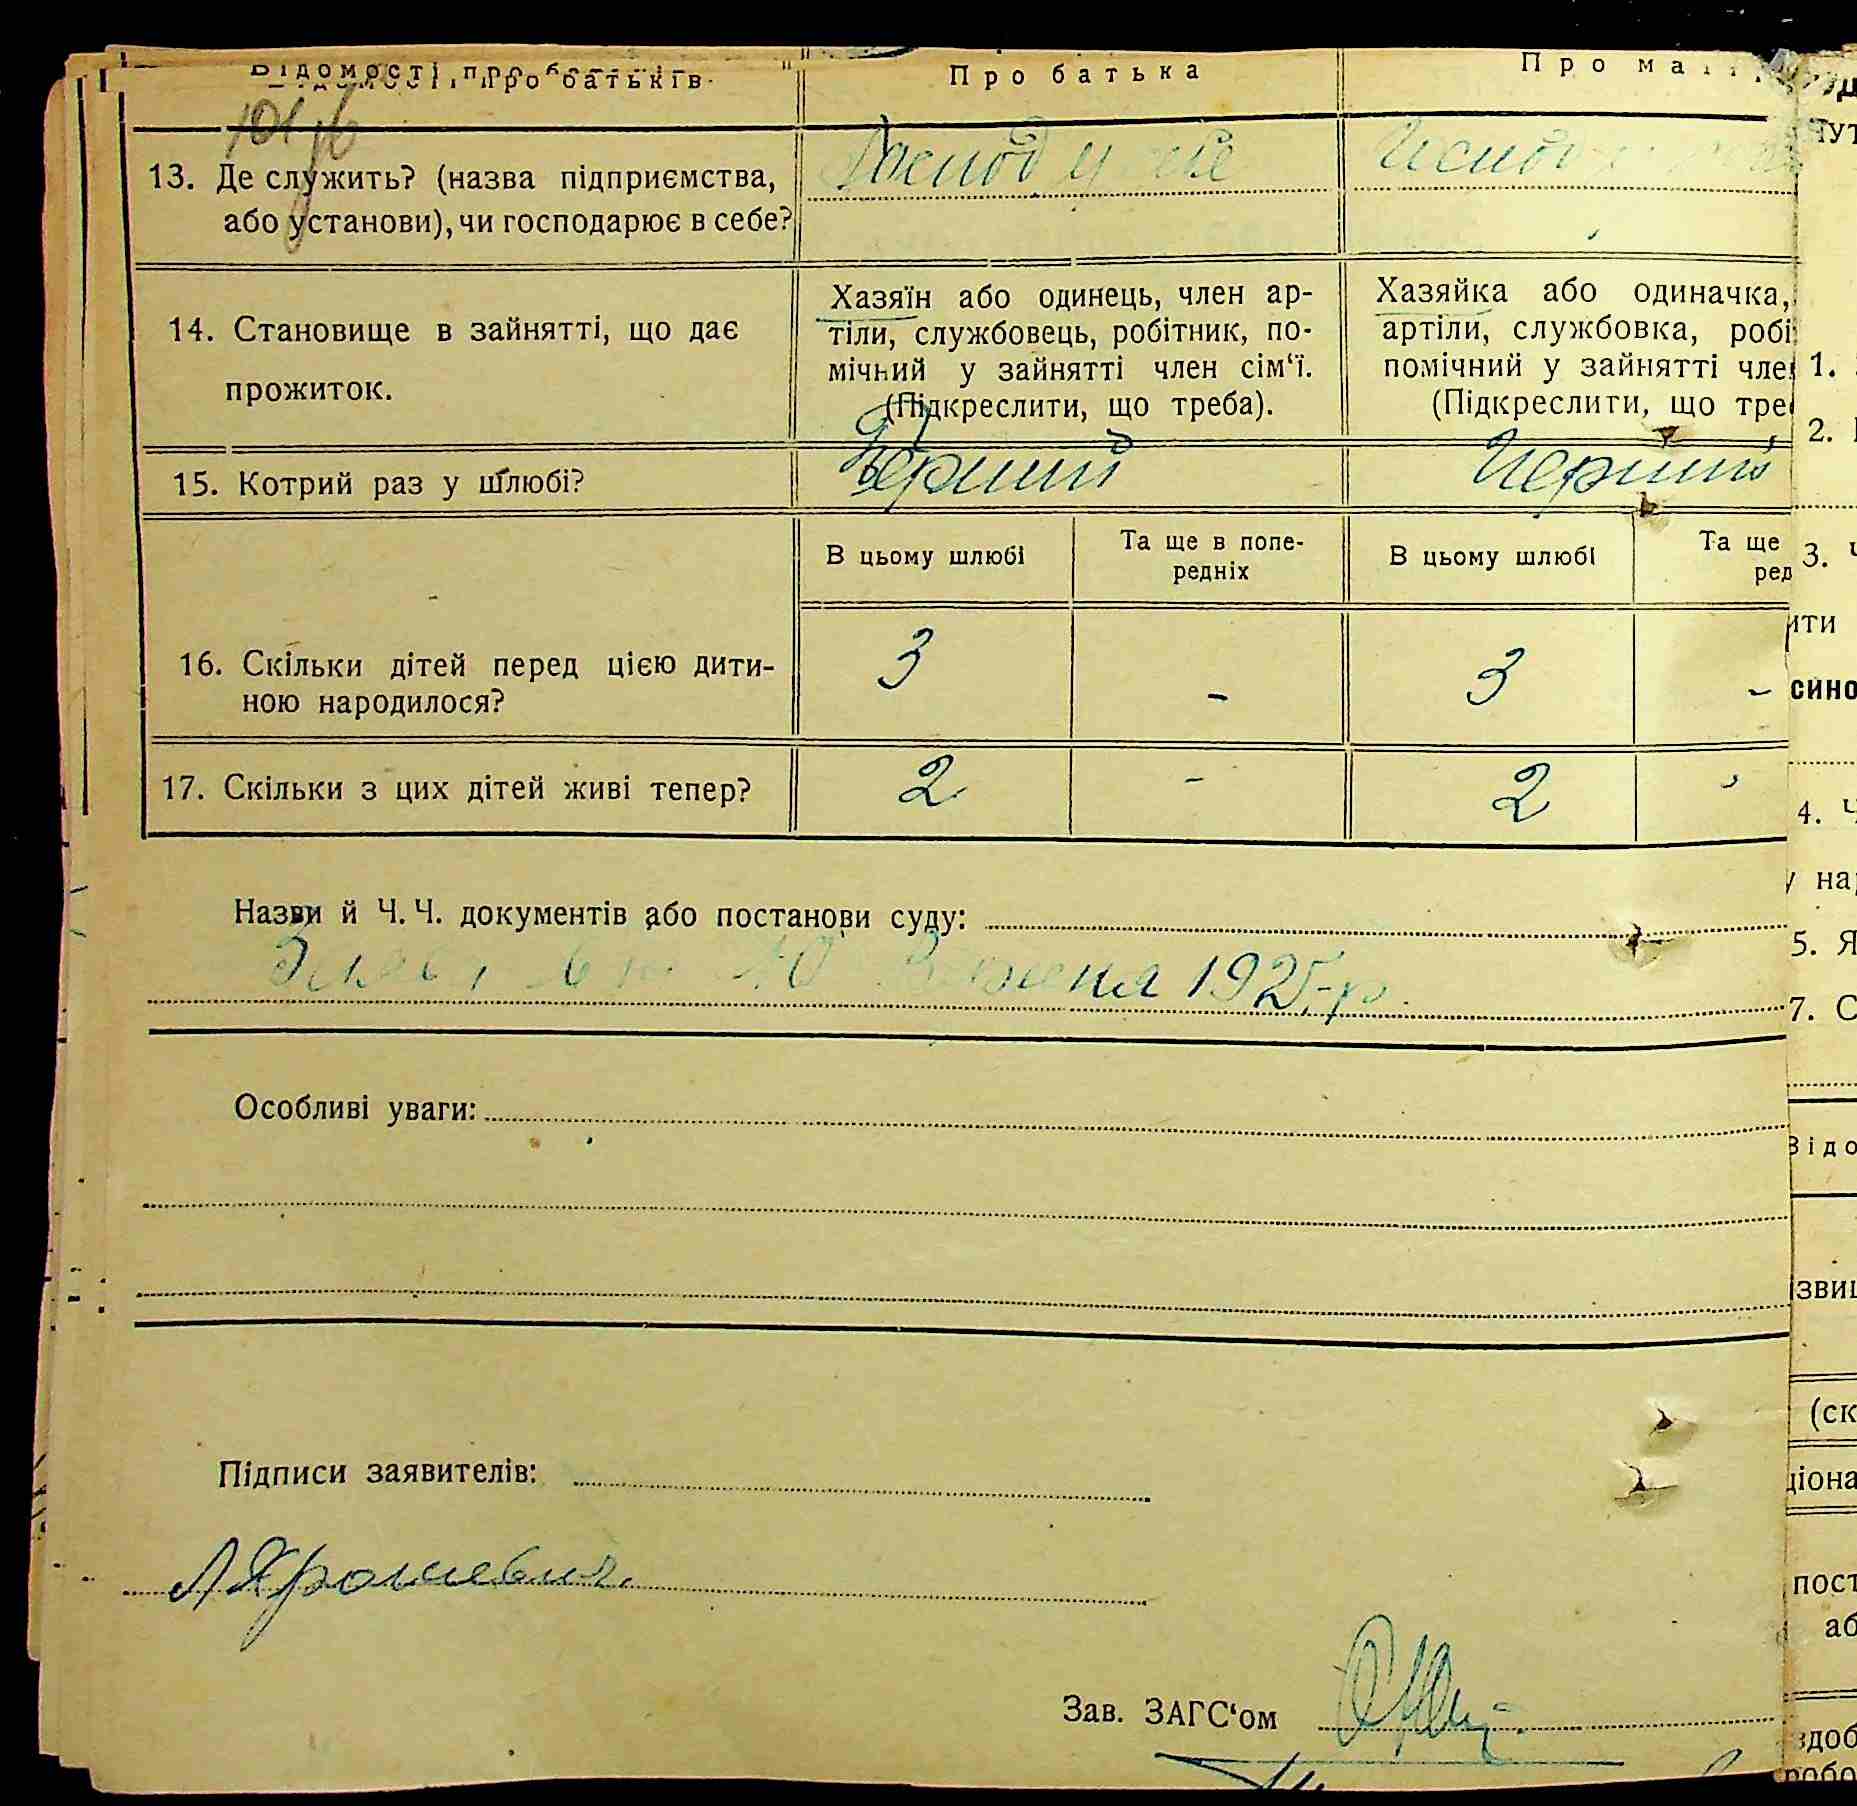 Відомості про батьків
Про батька
Про мат
101
13. Де служить? (назва підприємства,
або установи), чи господарює в себе?
Господ у
Господ
14. Становище в зайнятті, що дає
прожиток.
Хазяїн або одинець, член ар-
тіли, службовець, робітник, по-
мічний у зайнятті член сім‘ї.
(Підкреслити, що треба).
Хазяйка або одиначка,
артіли, службовка, робі
помічний у зайнятті чле
(Підкреслити, що тре
15. Котрий раз у шлюбі?
Перший
Перший
В цьому шлюбі
Та ще в попе-
редніх
В цьому шлюбі
Та ще
ред
16. Скільки дітей перед цією дити-
ною народилося?
3
-
3
-
17. Скільки з цих дітей живі тепер?
2
-
2
Назви й Ч. Ч. документів або постанови суду:
10 1925 р.
Особливі уваги:
Підписи заявителів:
Зав. ЗАГС‘ом
1.
2.
3. Ч
ити
сино
4. Ч
у на
5. Я
7. С
Відо
звищ
(ск
ціона
пост
аб
здоб
робо